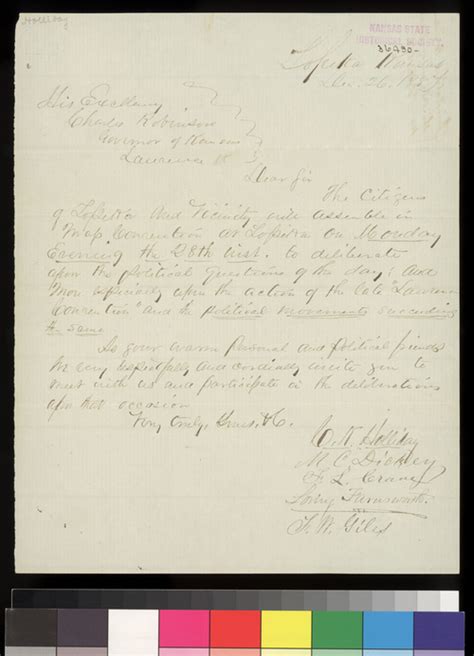 Holliday
KANSAS STATE
HISTORICAL SOCIETY
36490-
Topeka Kansas
Dec. 26. 1857.
His Excellency
Charles Robinson
Governor of Kansas
Lawrence K
Dear Sir
The Citizens
of Topeka and Vicinity will assemble in
Mass Convention at Topeka on Monday
Evening the 28th inst. to deliberate
upon the political questions of the day; and
more especially upon the action of the late "Lawrence
Convention" and the political movements succeeding
the same
As your warm personal and political friends
we very respectfully and cordially invite you to
meet with us and participate in the deliberations
upon that occasion
Very truly, Yours, &c.
C. K. Holliday
M. C. Dickey
F. L. Crane
Loring Farnsworth.
F. W. Giles